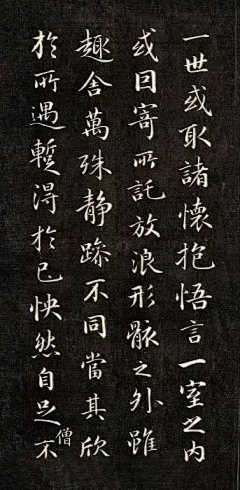 一世或取諸懷抱悟言一室之内
或因寄所託放浪形骸之外雖
趣舍萬殊静躁不同當其欣
於所遇蹔得於己怏然自足不
僧